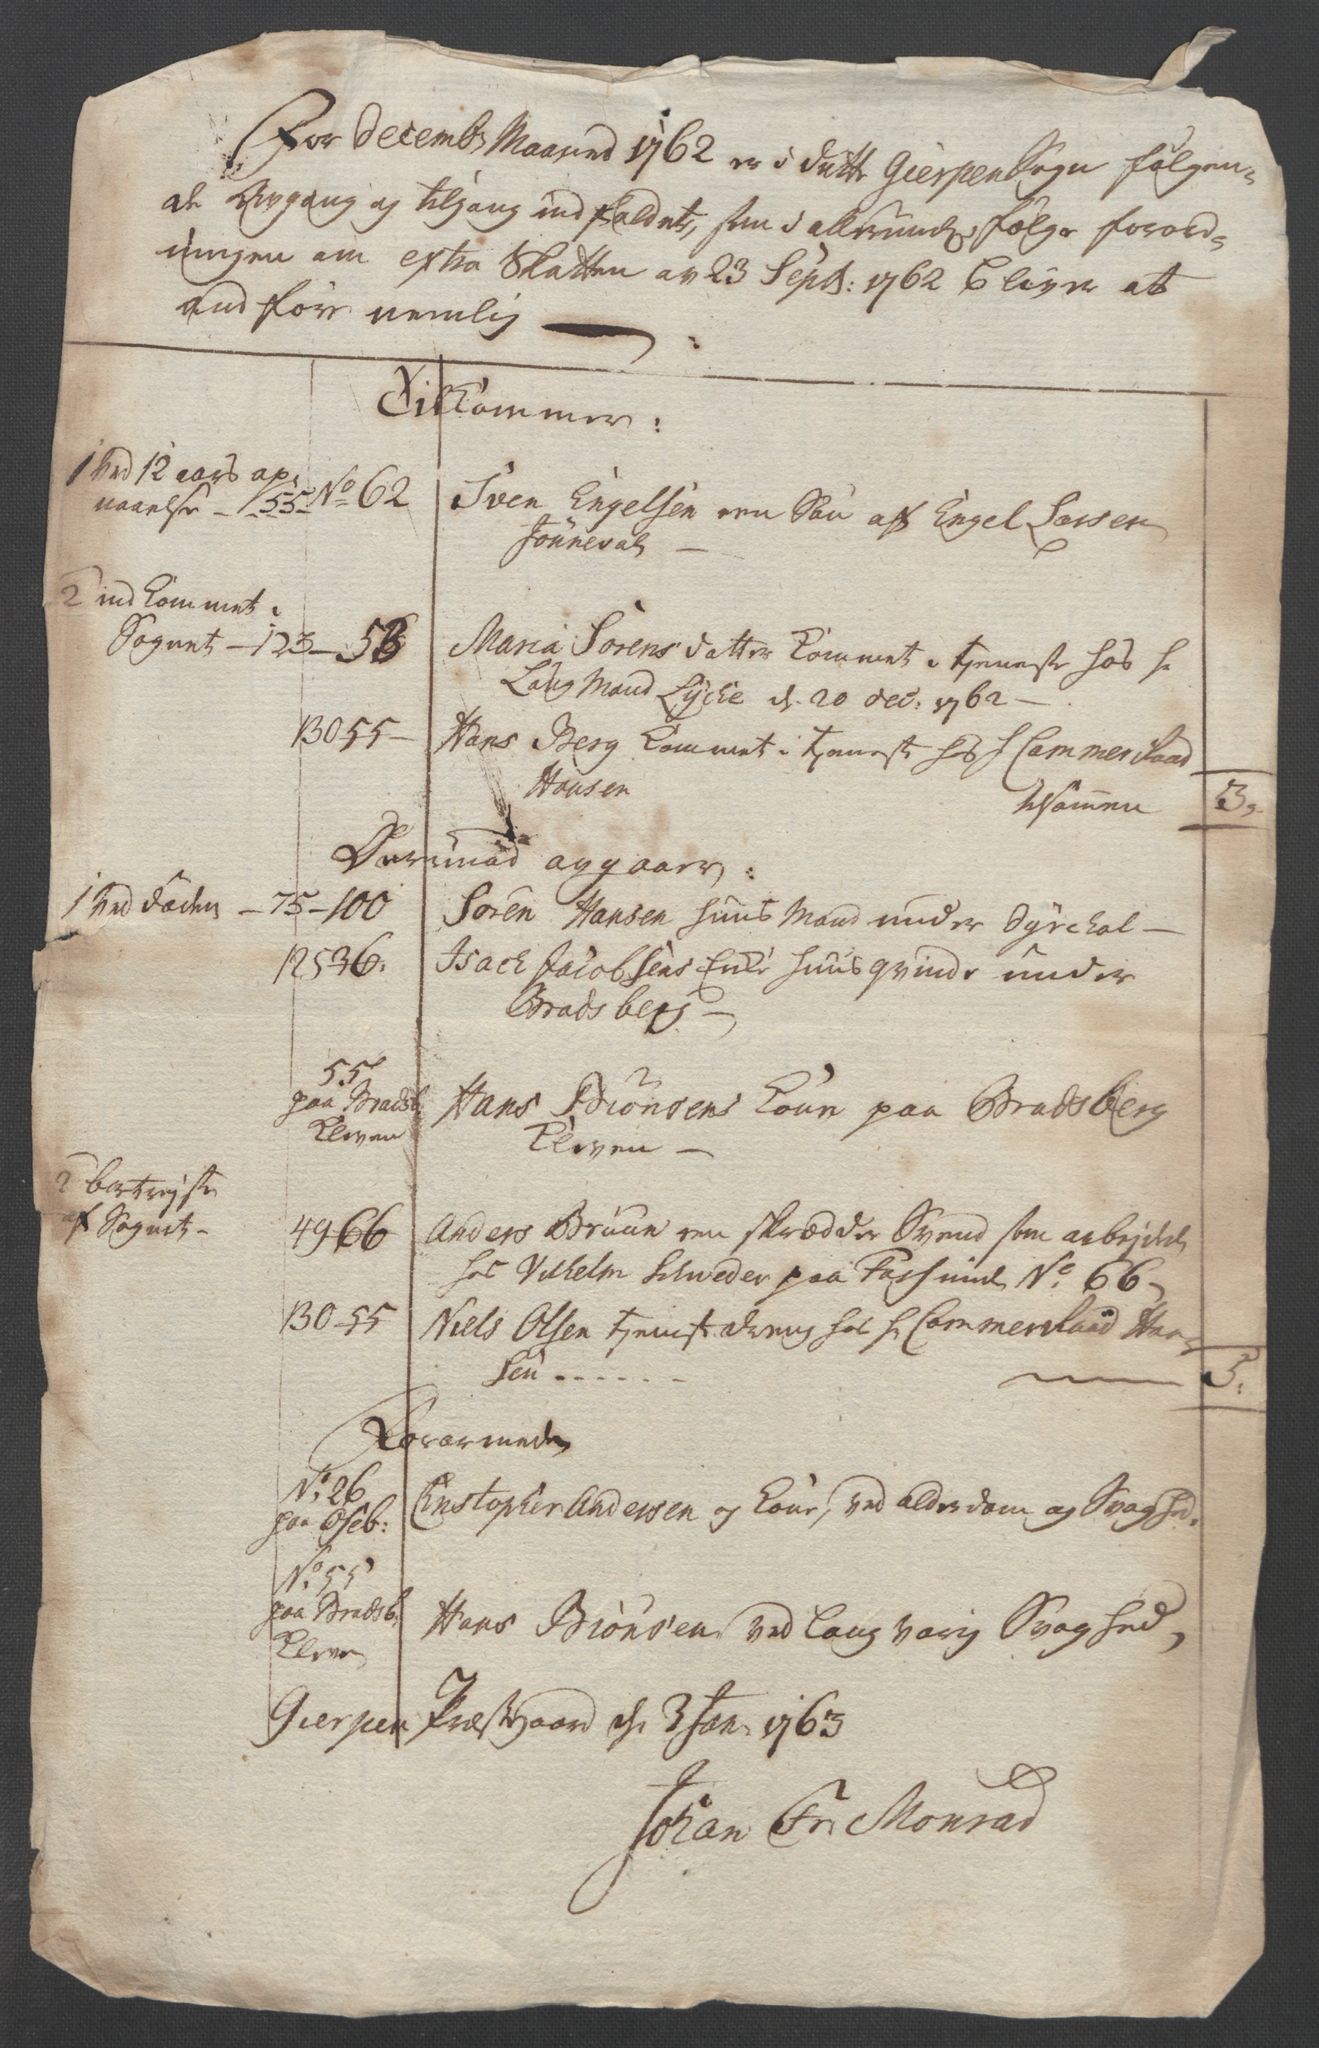 For Decembr Maaned 1762 er i dette Gierpen Sogn følgen-
de Avgang og tilgang ind faldet, som i allerund: følge forord-
ningen om extra Skatten av 23 Septb: 1762 bliver at
and føre nemlig
Tilkommer:
1 ved 12 aars op-
naaelse - 155 - No 62 Sven Engelsen een Søn af Engel Larsen
Jønneval -
2 ind kommet i
Sognet - 123 - 53 Maria Sørens datter kommet i tjeneste hos hr
Laug Mand Lÿche d. 20 dec: 1762 -
130 - 55 - Hans Berg kommet i tjeneste hos hr Cammer Raad
Hansen tilsammen 3,
Derimod avgaaer:
1 ved døden - 75 - 100 Søren Hansen huus Mand under Dyrchol -
125 36. Isach Jacobsens Enke huus qvinde under
Bradsberg -
55
paa Bradsb: Hans Biønsens kone paa Bradsberg
Kleven Kleven -
2 bortrejste
af Sognet - 49 66 Anders Bruun een skrædder Svend som arbejdede
hos Vilhelm Schweder paa Fossum No 66 -
130 - 55 Niels Olsen tjeneste dreng hos hr Cammer Raad Han-
sen - - - - - - 5:
Forarmede
No 26
paa Oseb: Christopher Andersen og kone, ved alderdom og Svaghed.
No 55
paa Bradsb. Hans Biønsen ved langvarig Svaghed,
Kleven
Gierpen Præstegaard d. 3 Jan. 1763
Johan Fr. Monrad